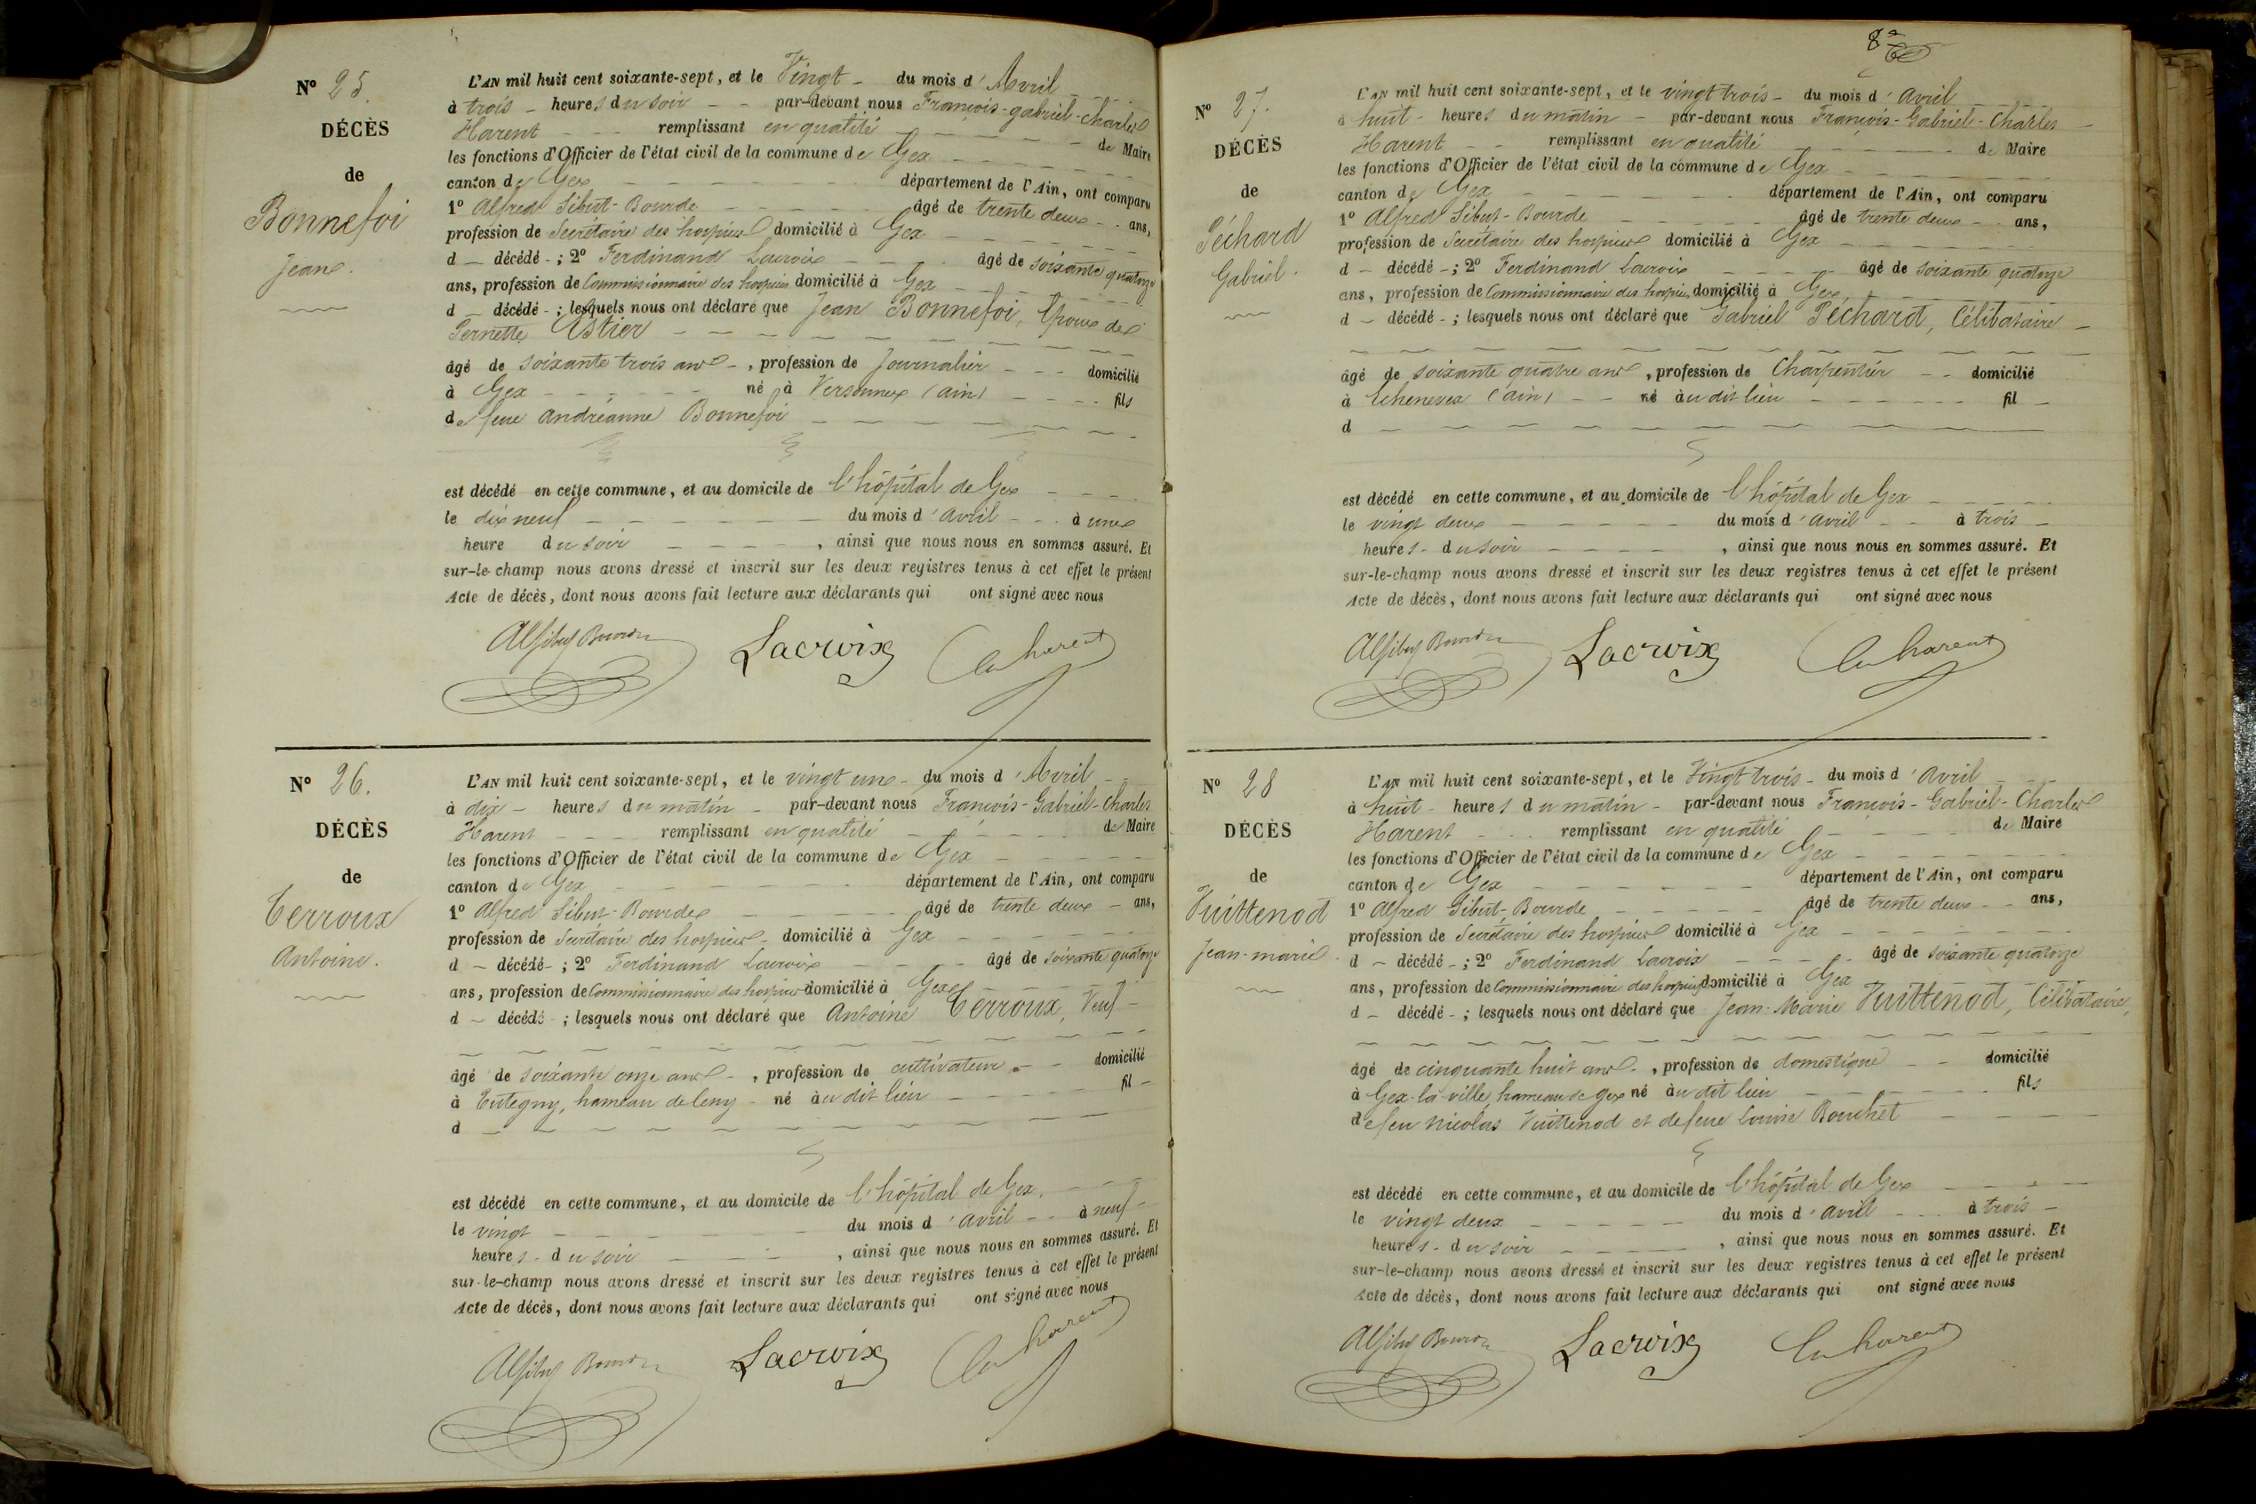 Nº 25.
DÉCÈS
de
Bonnefoi
Jean.
L'AN mil huit cent soixante-sept, et le Vingt - du mois d'Avril
à trois - heures du soir - - par-devant nous François-gabriel-Charles
Harent - - - remplissant en qualité - - - de Maire
les fonctions d'Officier de l'état civil de la commune de Gex
canton de Gex - - - département de l'Ain, ont comparu
1º Alfred Sibut-Bourde - - - âgé de trente deux - - ans,
profession de Secrétaire des hospices domicilié à Gex
d - décédé - ; 2º Ferdinand Lacroix - - - âgé de soixante quatorze
ans, profession de Commissionnaire des hospices domicilié à Gex
d - décédé - ; lesquels nous ont déclaré que Jean Bonnefoi, Epoux de
Pernette Astier
âgé de soixante trois ans - , profession de Journalier - - - domicilié
à Gex - - - né à Versonnex (ain) - - - fils
de feue andréanne Bonnefoi
est décédé en cette commune, et au domicile de l'hôpital de Gex
le dix neuf - - - du mois d'avril - - - à une
heure du soir - - - , ainsi que nous nous en sommes assuré. Et
sur-le-champ nous avons dressé et inscrit sur les deux registres tenus à cet effet le présent
Acte de décès, dont nous avons fait lecture aux déclarants qui ont signé avec nous
Lacroix
Harent
Nº 26.
DÉCÈS
de
Terroux
Antoine.
L'AN mil huit cent soixante-sept, et le vingt un - du mois d'Avril
à dix - heures du matin - par-devant nous François-Gabriel-Charles
Harent - - - remplissant en qualité - - - de Maire
les fonctions d'Officier de l'état civil de la commune de Gex
canton de Gex - - - département de l'Ain, ont comparu
1º Alfred Sibut-Bourde - - - âgé de trente deux - ans,
profession de Secrétaire des hospices - domicilié à Gex
d - décédé - ; 2º Ferdinand Lacroix - - - âgé de soixante quatorze
ans, profession de Commissionnaire des hospices domicilié à Gex
d - décédé - ; lesquels nous ont déclaré que Antoine Terroux, Veuf -
âgé de soixante onze ans - , profession de cultivateur - - domicilié
à Tutegny, hameau de Ceny - né audit lieu - - - fil -
d -
est décédé en cette commune, et au domicile de l'hôpital de Gex.
le vingt - - - du mois d'avril - - à neuf -
heures - du soir - - - , ainsi que nous nous en sommes assuré. Et
sur-le-champ nous avons dressé et inscrit sur les deux registres tenus à cet effet le présent
Acte de décès, dont nous avons fait lecture aux déclarants qui ont signé avec nous
Lacroix
Harent
8
Nº 27.
DÉCÈS
de
Péchard
Gabriel.
L'AN mil huit cent soixante-sept, et le vingt trois - du mois d'avril
à huit - heures du matin - par-devant nous François-Gabriel-Charles -
Harent - - remplissant en qualité - - - de Maire
les fonctions d'Officier de l'état civil de la commune de Gex
canton de Gex - - - département de l'Ain, ont comparu
1º Alfred Sibut-Bourde - - - âgé de trente deux - - ans,
profession de Secrétaire des hospices domicilié à Gex
d - décédé - ; 2º Ferdinand Lacroix - - - âgé de soixante quatorze
ans, profession de Commissionnaire des hospices domicilié à Gex
d - décédé - ; lesquels nous ont déclaré que Gabriel Péchard, Célibataire -
âgé de soixante quatre ans , profession de Charpentier - - domicilié
à Echenevex (ain) - - né audit lieu - - - fil -
d -
est décédé en cette commune, et au domicile de l'hôpital de Gex
le vingt deux - - - du mois d'avril - - à trois -
heures - du soir - - - , ainsi que nous nous en sommes assuré. Et
sur-le-champ nous avons dressé et inscrit sur les deux registres tenus à cet effet le présent
Acte de décès, dont nous avons fait lecture aux déclarants qui ont signé avec nous
Lacroix
Harent
Nº 28
DÉCÈS
de
Vuittenod
Jean-marie.
L'AN mil huit cent soixante-sept, et le Vingt trois - du mois d'avril
à huit - heures du matin - par-devant nous François-Gabriel-Charles
Harent - - - remplissant en qualité - - - de Maire
les fonctions d'Officier de l'état civil de la commune de Gex
canton de Gex - - - département de l'Ain, ont comparu
1º Alfred Sibut-Bourde - - - âgé de trente deux - - ans,
profession de Secrétaire des hospices domicilié à Gex
d - décédé - ; 2º Ferdinand Lacroix - - - âgé de soixante quatorze
ans, profession de Commissionnaire des hospices domicilié à Gex
d - décédé - ; lesquels nous ont déclaré que Jean-Marie Vuittenod, Célibataire,
âgé de cinquante huit ans - , profession de domestique - - domicilié
à Gex-la-ville, hameau de gex né audit lieu - - - fils
de feu nicolas Vuittenod et de feue Louise Bouchet
est décédé en cette commune, et au domicile de l'hôpital de Gex
le vingt deux - - - du mois d'avril - - - à trois -
heures - du soir - - - , ainsi que nous nous en sommes assuré. Et
sur-le-champ nous avons dressé et inscrit sur les deux registres tenus à cet effet le présent
Acte de décès, dont nous avons fait lecture aux déclarants qui ont signé avec nous
Lacroix
Harent